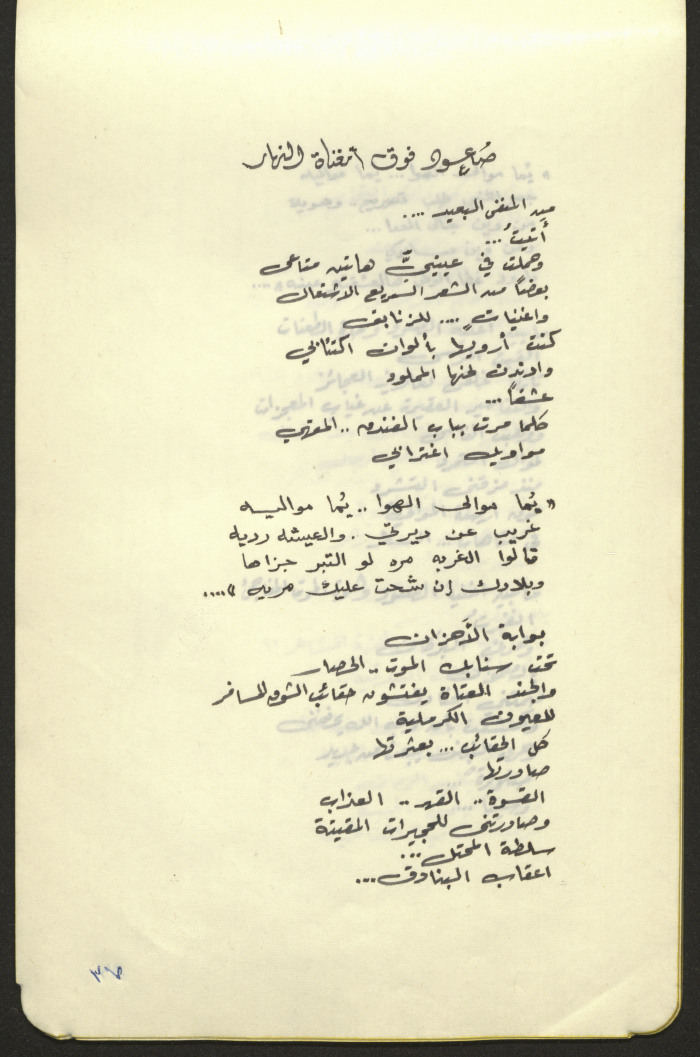 صاعود فوق أغناة النهار
من المنفى البعيد ....
أتيتُ ...
وحملت في عينيّ هاتين متاعي
بعضاً من الشعر السريع الاشتعال
واغنيات .... للزنابق
كنت أرويها بألوان اكتئابي
وادندن لحنها المملود
عشقاً ...
كلما مرت ببابِ الفندق .. المقهى
مواويل اغترابي
« يُما موالى الهوا .. يُما مواليه
غريب عن ديرتي . والعيشه رديه
قالوا الغربه مره لو التبر جزاها
وبلادك إن شحت عليك مريه » ....
بوابة الأحزان
تحت سنابك الموت .. الحصار
والجند العتاة يفتشون حقائب الشوق المسافر
للعيون الكرملية
كل الحقائب ... بعثرتها
صادرتها
القسوة .. القهر .. العذاب
وصادرتني للحجيرات المقيتة
سلطة المحتل ...
اعقاب البنادق ...